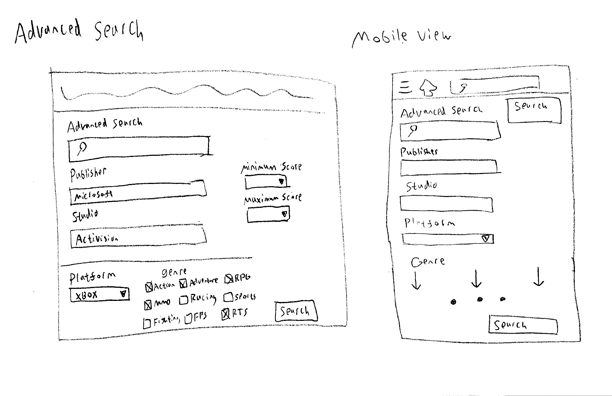 Advanced Search
Mobile View
Advanced Search
Publisher
Microsoft
Studio
Activision
Minimum Score
Maximum Score
Platform
XBOX
Genre
Action Adventure RPG
MMO Racing Sports
Fighting FPS RTS
Search
Advanced Search
Search
Publisher
Studio
Platform
Genre
Search